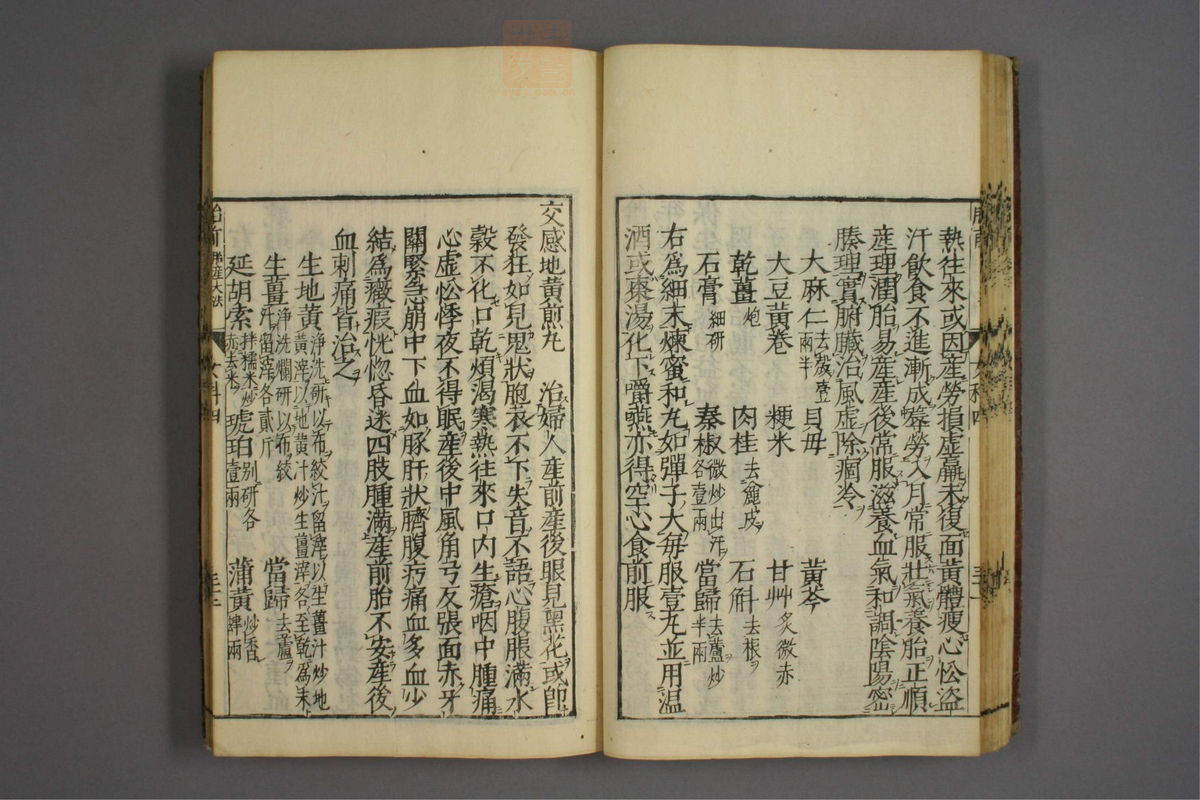 熱往來或因産勞損虛羸未復面黃體瘦心忪盜
汗飲食不進漸成蓐勞入月常服壯氣養胎正順
産理潤胎易産産後常服滋養血氣和調陰陽密
腠理實腑臟治風虛除痼冷
大麻仁去殼壹兩半 貝母 黃芩
大豆黃卷 粳米 甘艸炙微赤
乾薑炮 肉桂去麄皮 石斛去根
石膏細研 秦椒微炒出汗各壹兩 當歸去蘆炒半兩
右爲細末煉蜜和丸如彈子大毎服壹丸並用温
酒或棗湯化下嚼嚥亦得空心食前服
交感地黃煎丸 治婦人産前産後眼見黑花或即
發狂如見鬼狀胞衣不下失音不語心腹脹滿水
穀不化口乾煩渴寒熱往來口内生瘡咽中腫痛
心虛忪悸夜不得眠産後中風角弓反張面赤牙
關緊急崩中下血如豚肝狀臍腹㽲痛血多血少
結爲癥瘕恍惚昏迷四肢腫滿産前胎不安産後
血刺痛皆治之
生地黃淨洗研以布絞汁留滓以生薑汁炒地黃滓以地黄汁炒生薑滓各至乾爲末
生薑淨洗爛研以布絞汁留滓各貳斤 當歸去蘆
延胡索拌糯米炒赤去米 琥珀別研各壹兩 蒲黃炒香肆兩